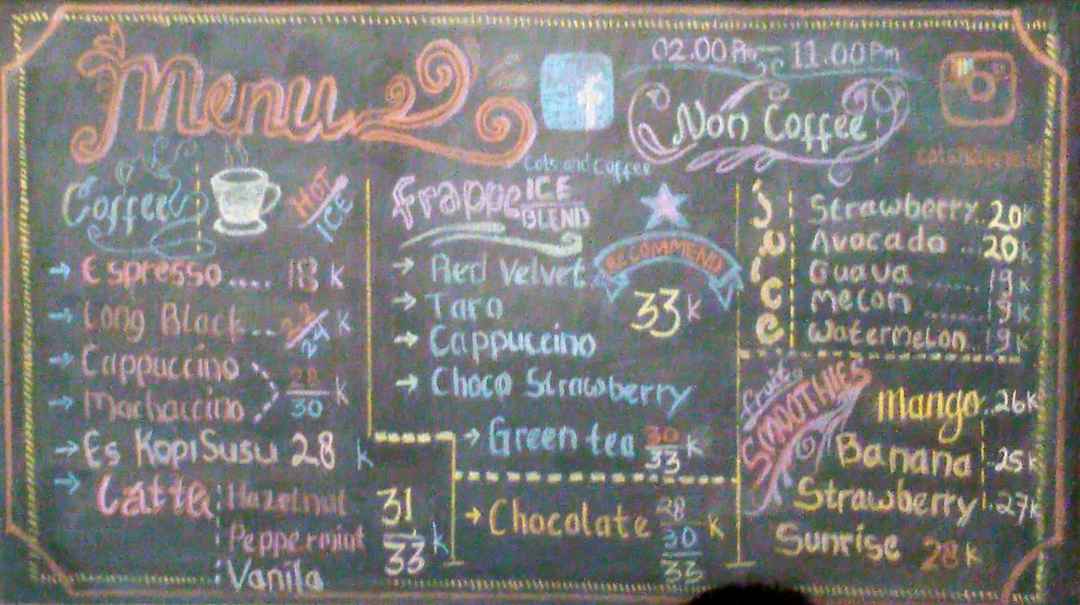 Menu
f
Cats and Coffee
02.00 Pm - 11.00 Pm
Non Coffee
Coffee
HOT
ICE
Espresso.... 18 k
Long Black.. 24 k
Cappuccino
Mochaccino
28
30 k
Es Kopi Susu 28 k
Latte
Hazelnut
Peppermint
Vanila
31
33 k
Frappe ICE
BLEND
RECOMMEND
Red Velvet
Taro
Cappuccino
Choco Strawberry
33 k
Green tea 30
33 k
Chocolate 28
30
33 k
Juice
Strawberry..20k
Avocado ..20k
Guava ......19k
Melon ......19k
Watermelon..19k
fruit
SMOOTHIES
Mango..26k
Banana ..25k
Strawberry ..27k
Sunrise 28k